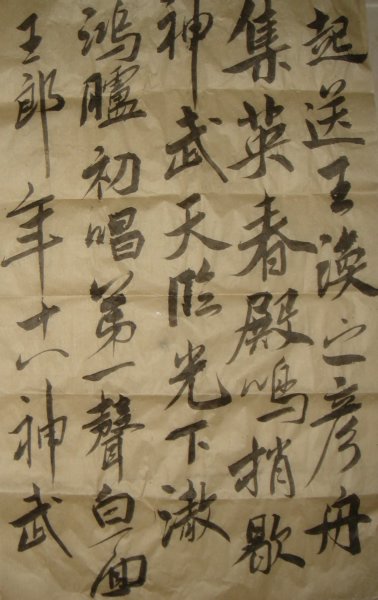 起送王渙之彥舟
集英春殿鳴捎歇
神武天臨光下澈
鴻臚初唱第一聲白面
王郎年十八神武